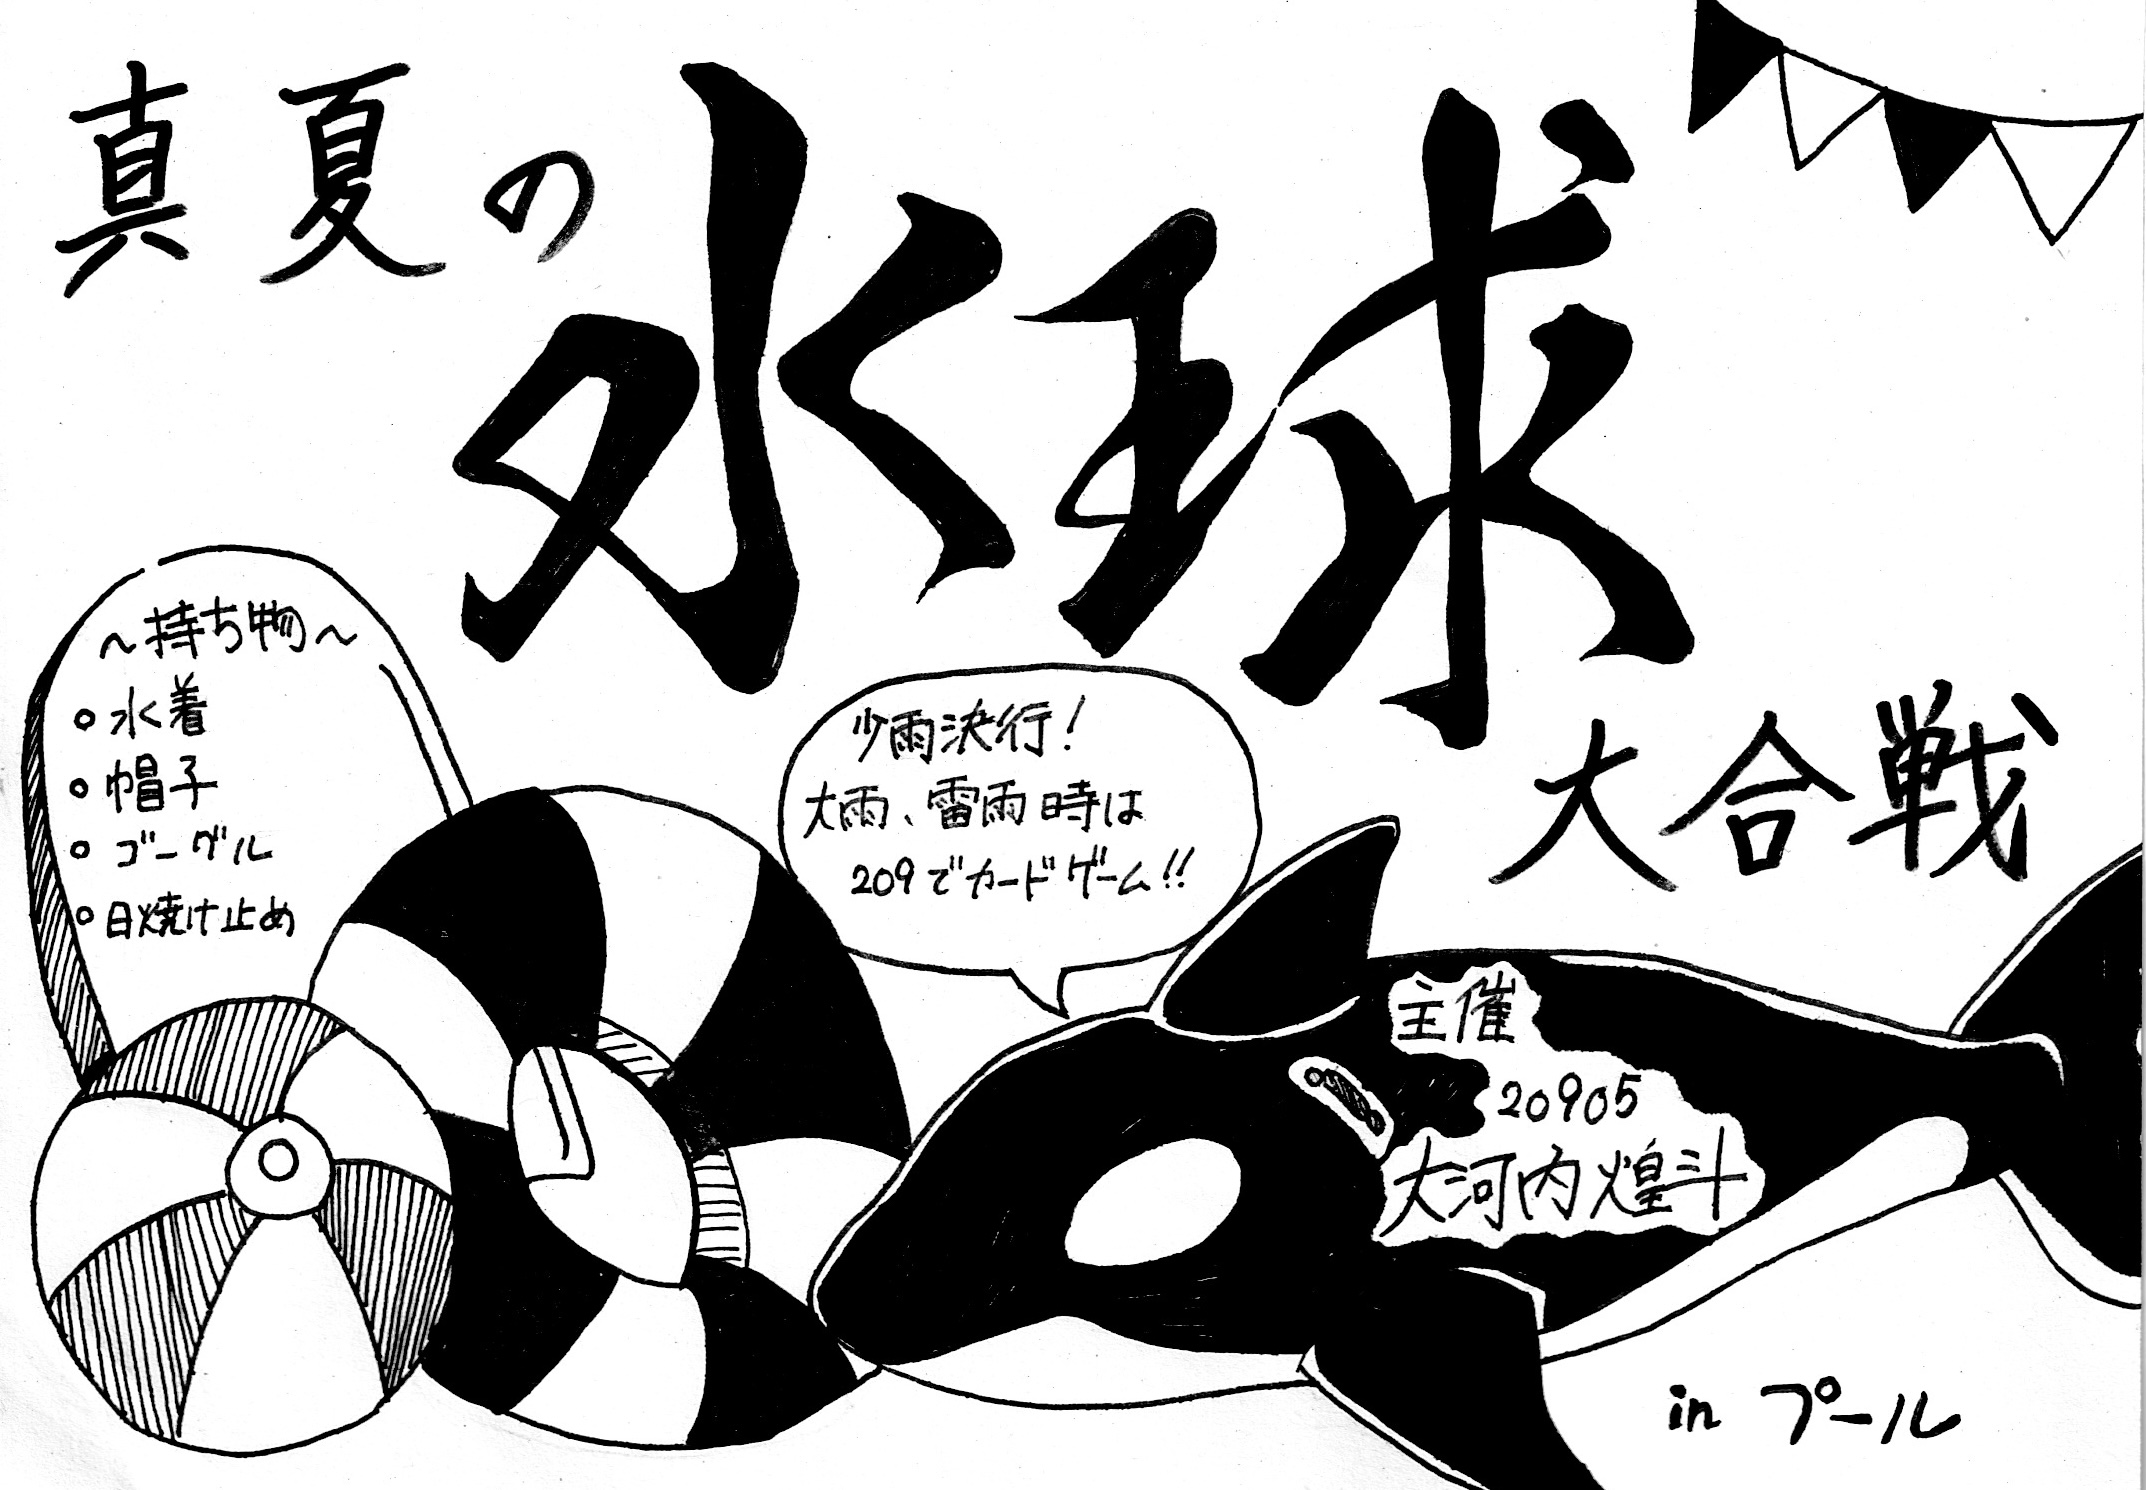 真夏の
水球
大合戦
～持ち物～
○水着
○帽子
○ゴーグル
○日焼け止め
少雨決行!
大雨、雷雨時は
209でカードゲーム!!
主催
20905
大河内煌斗
in プール